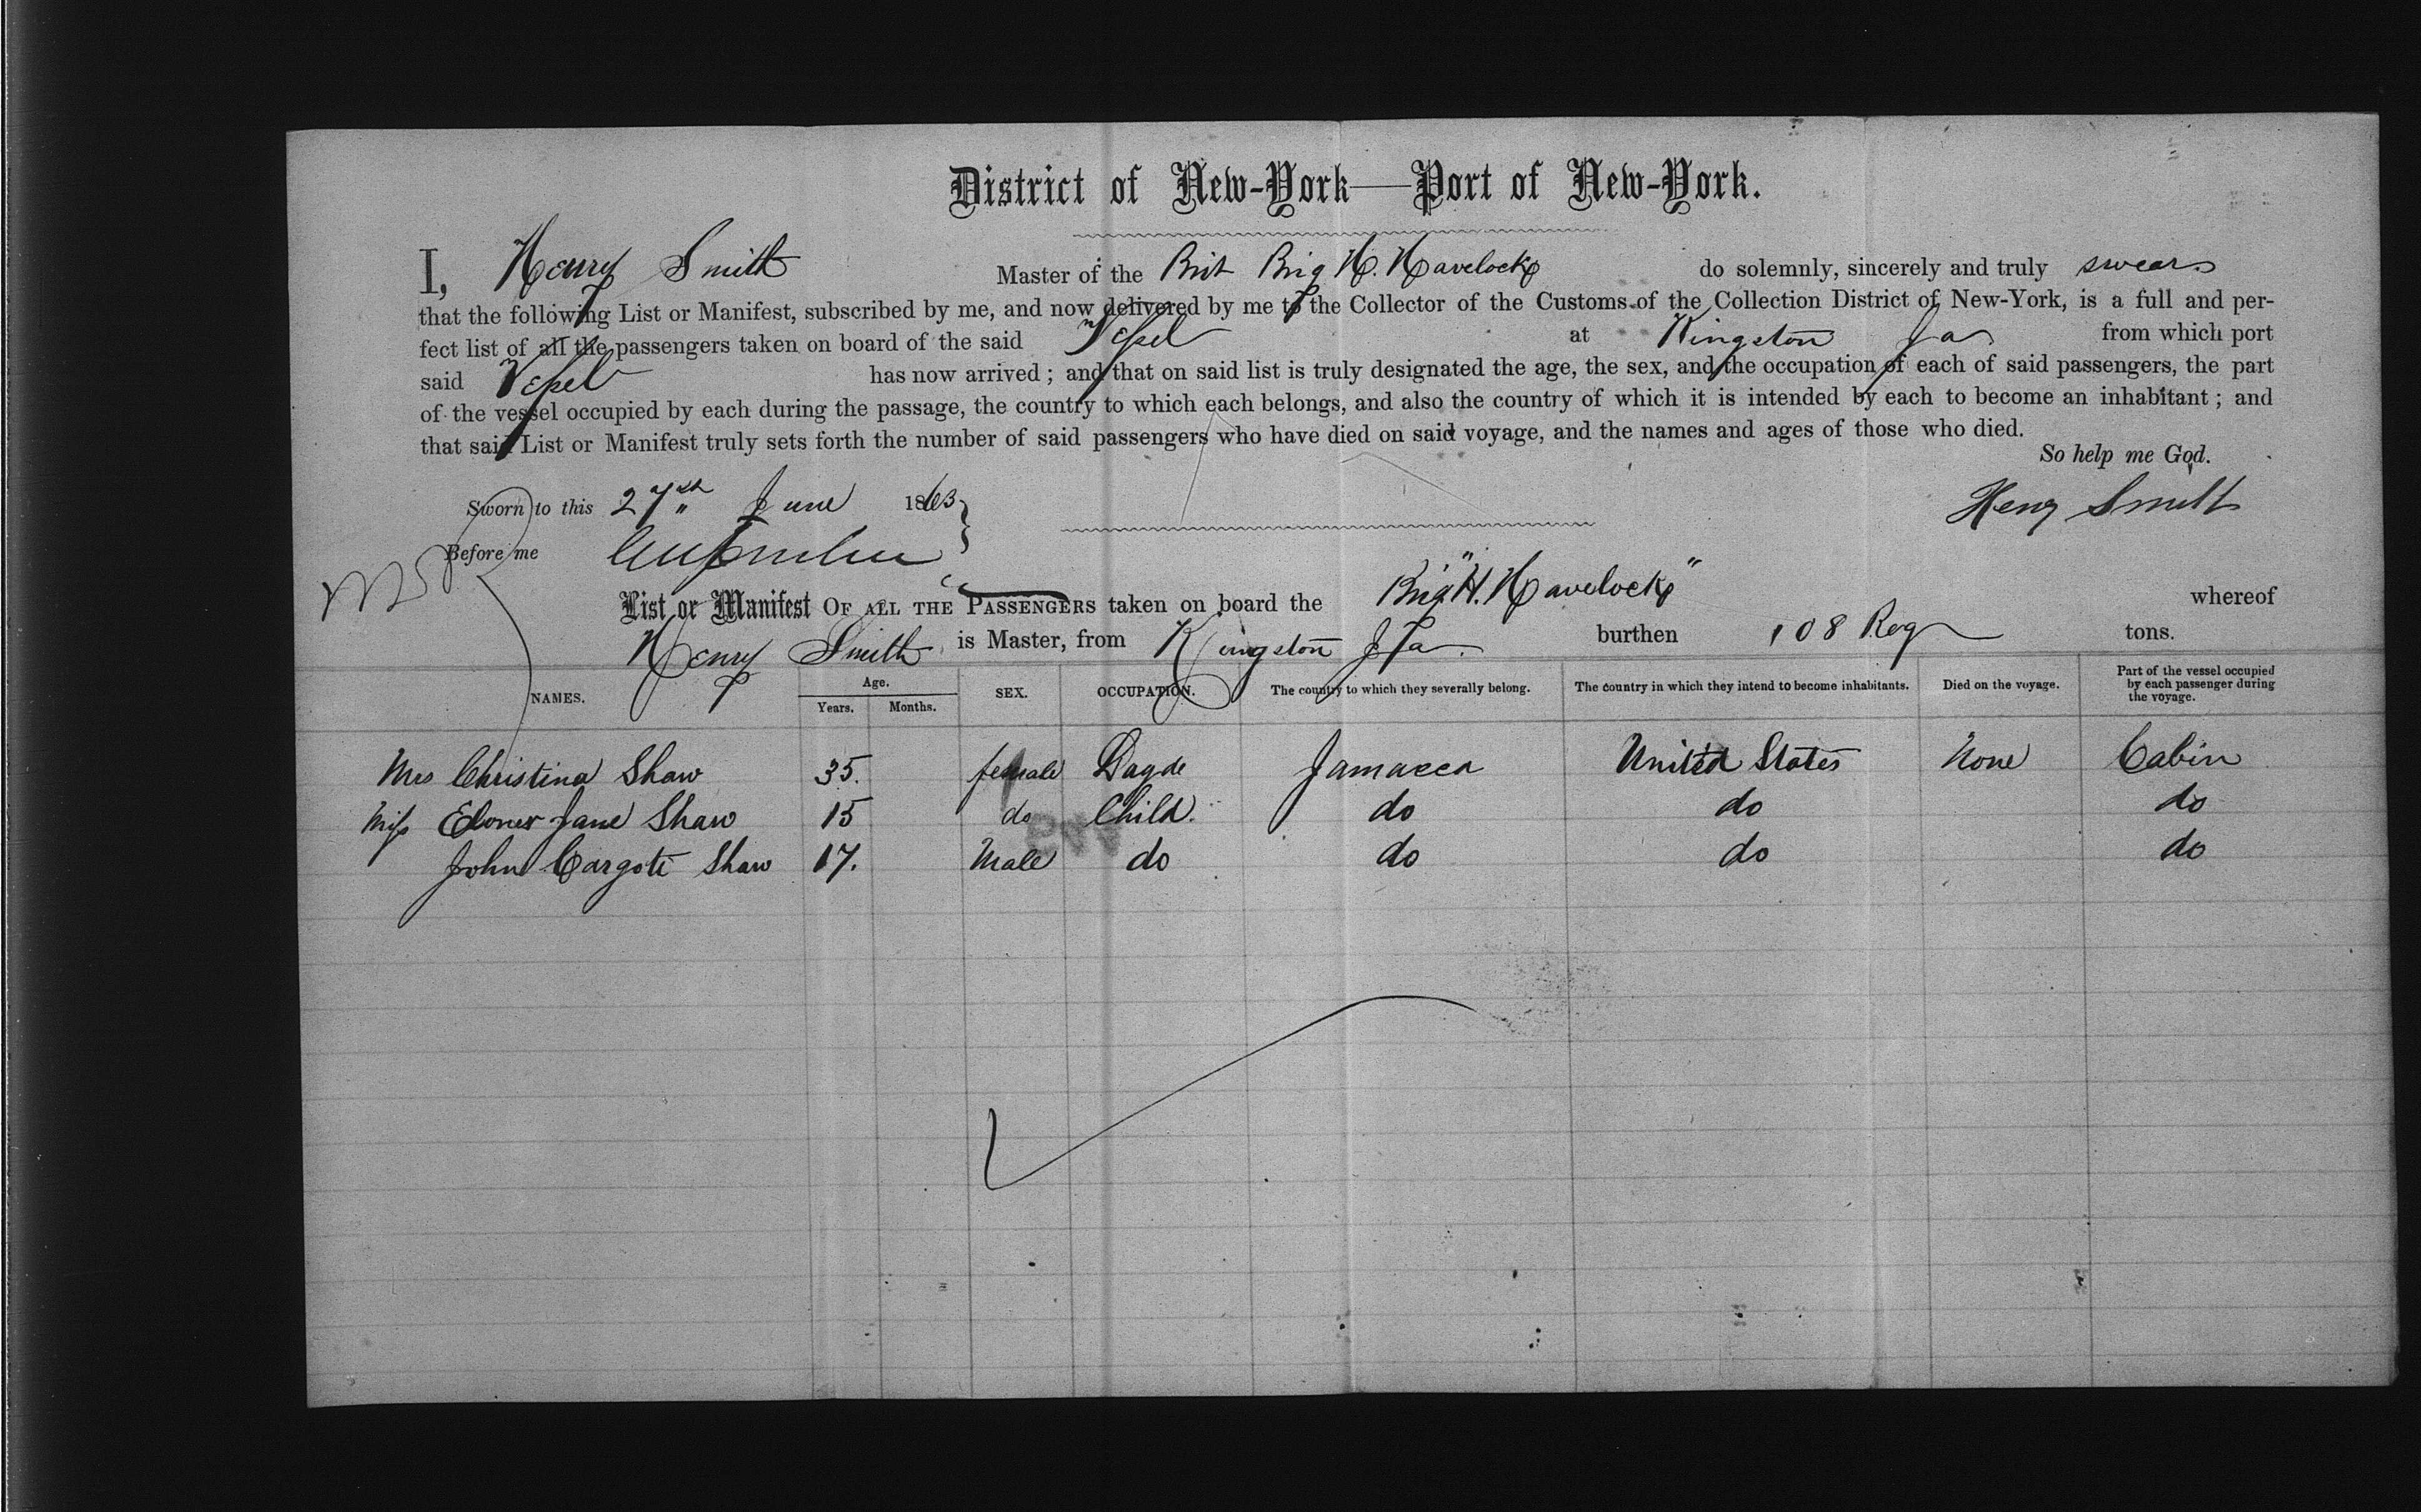 District of New-York—Port of New-York.
I, Henry Smith Master of the Brit Brig H. Havelock do solemnly, sincerely and truly swear
that the following List or Manifest, subscribed by me, and now delivered by me to the Collector of the Customs of the Collection District of New-York, is a full and per-
fect list of all the passengers taken on board of the said Vessel at Kingston Ja from which port
said Vessel has now arrived ; and that on said list is truly designated the age, the sex, and the occupation of each of said passengers, the part
of the vessel occupied by each during the passage, the country to which each belongs, and also the country of which it is intended by each to become an inhabitant ; and
that said List or Manifest truly sets forth the number of said passengers who have died on said voyage, and the names and ages of those who died.
So help me God.
Sworn to this 27th June 1863
Henry Smith
Before me
List or Manifest OF ALL THE PASSENGERS taken on board the Brig "H. Havelock" whereof
Henry Smith is Master, from Kingston Ja. burthen 108 Reg tons.
NAMES. Age. Years. Months. SEX. OCCUPATION. The country to which they severally belong. The country in which they intend to become inhabitants. Died on the voyage. Part of the vessel occupied by each passenger during the voyage.
Mrs Christina Shaw 35. female Jamaeca United States None Cabin
Miss Jane Shaw 15 do Child. do do do
John Shaw 17. Male do do do do